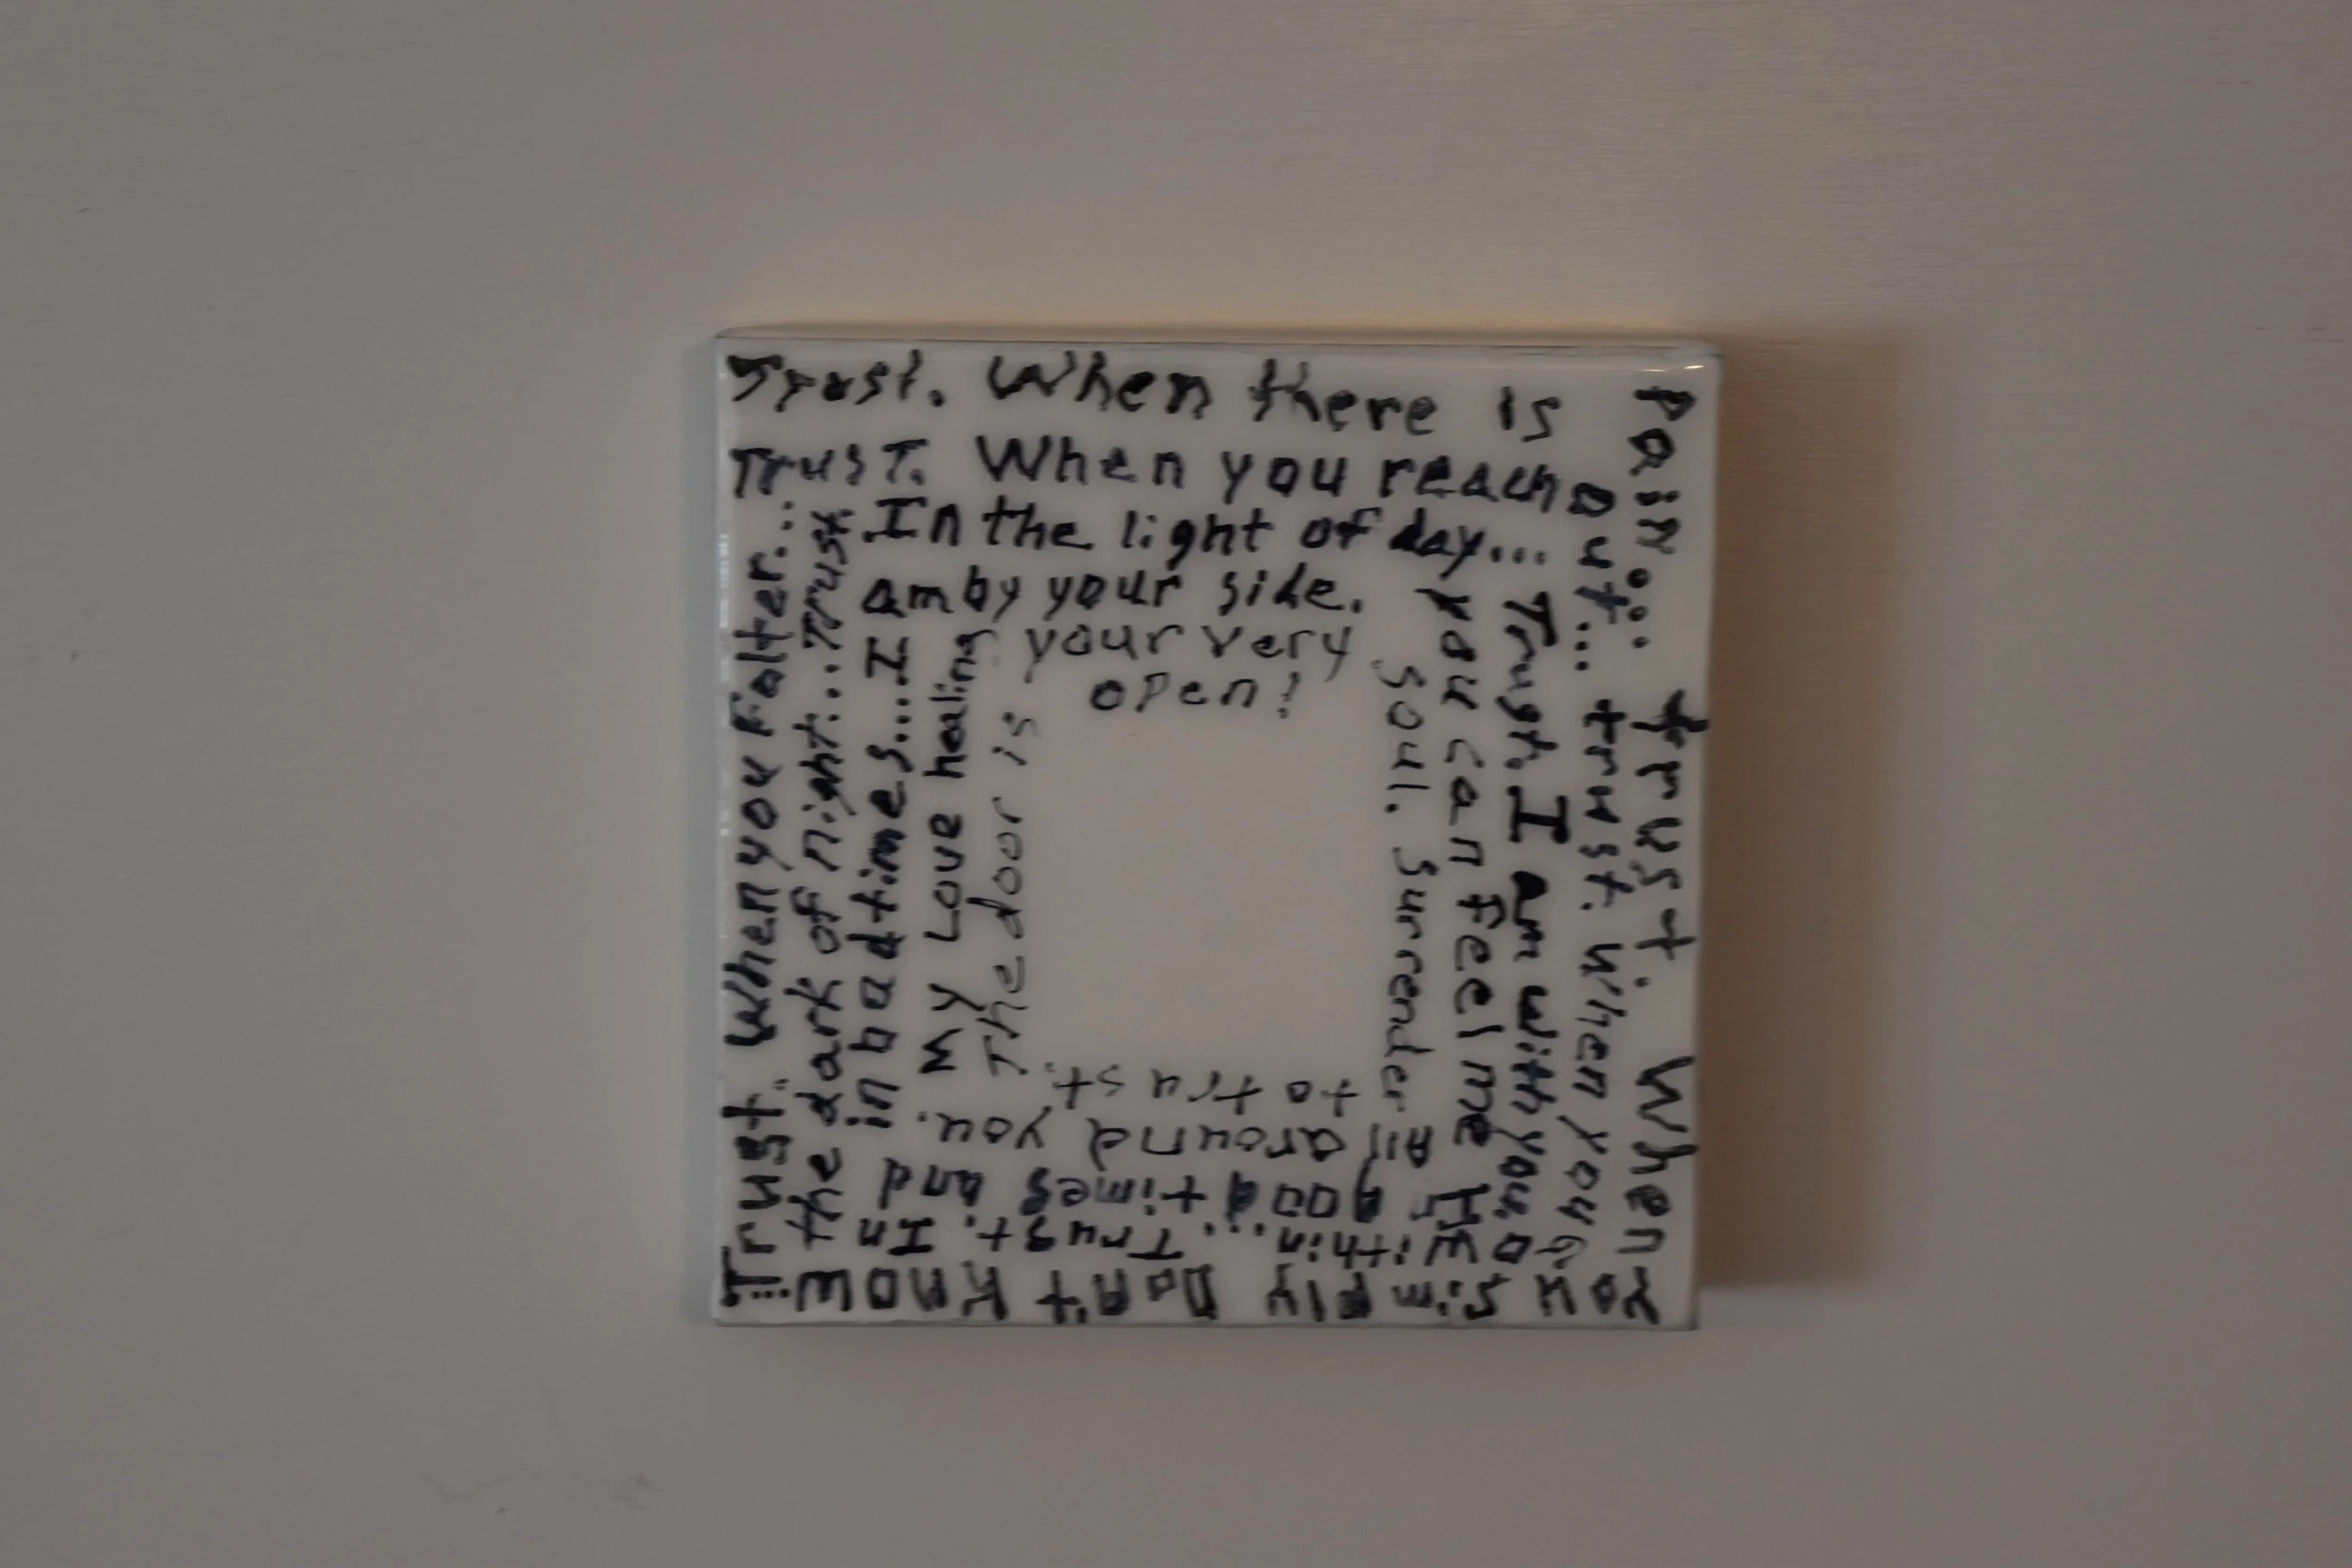 Trust. When there is
pain... trust. When
you simply Don't know...
Trust. When you Falter...
Trust. When you reach
out... trust. When you Go
within... Trust. In
the dark of night...Trust.
In the light of day...
Trust. I Am with you
in good times and
in bad times....I
am by your side.
you can Feel me
All around you.
My Love healing
your very
soul. Surrender
to trust.
The door is
open!